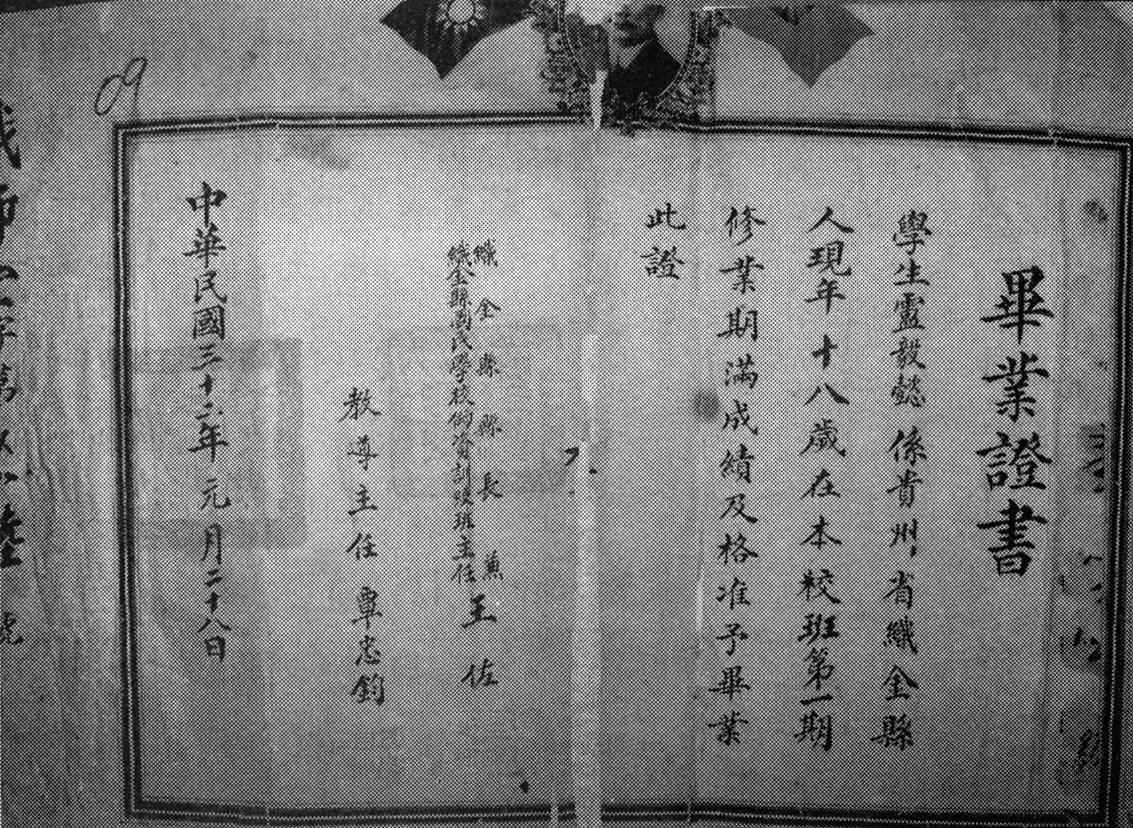 畢業證書
學生靈毅懿 係貴州省織金縣
人現年十八歲在本校班第一期
修業期滿成績及格准予畢業
此證
織金縣縣長兼
織金縣國民學校師資訓練班主任王佐
教導主任 覃忠鈞
中華民國三十二年元月二十八日
09